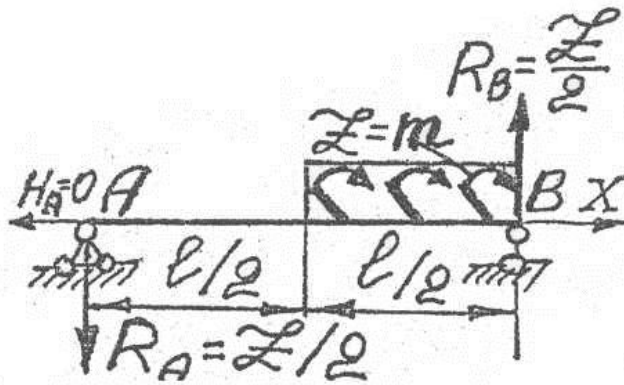 R_B=Z/2
Z=m
H_A=0 A
B X
l/2
l/2
R_A=Z/2